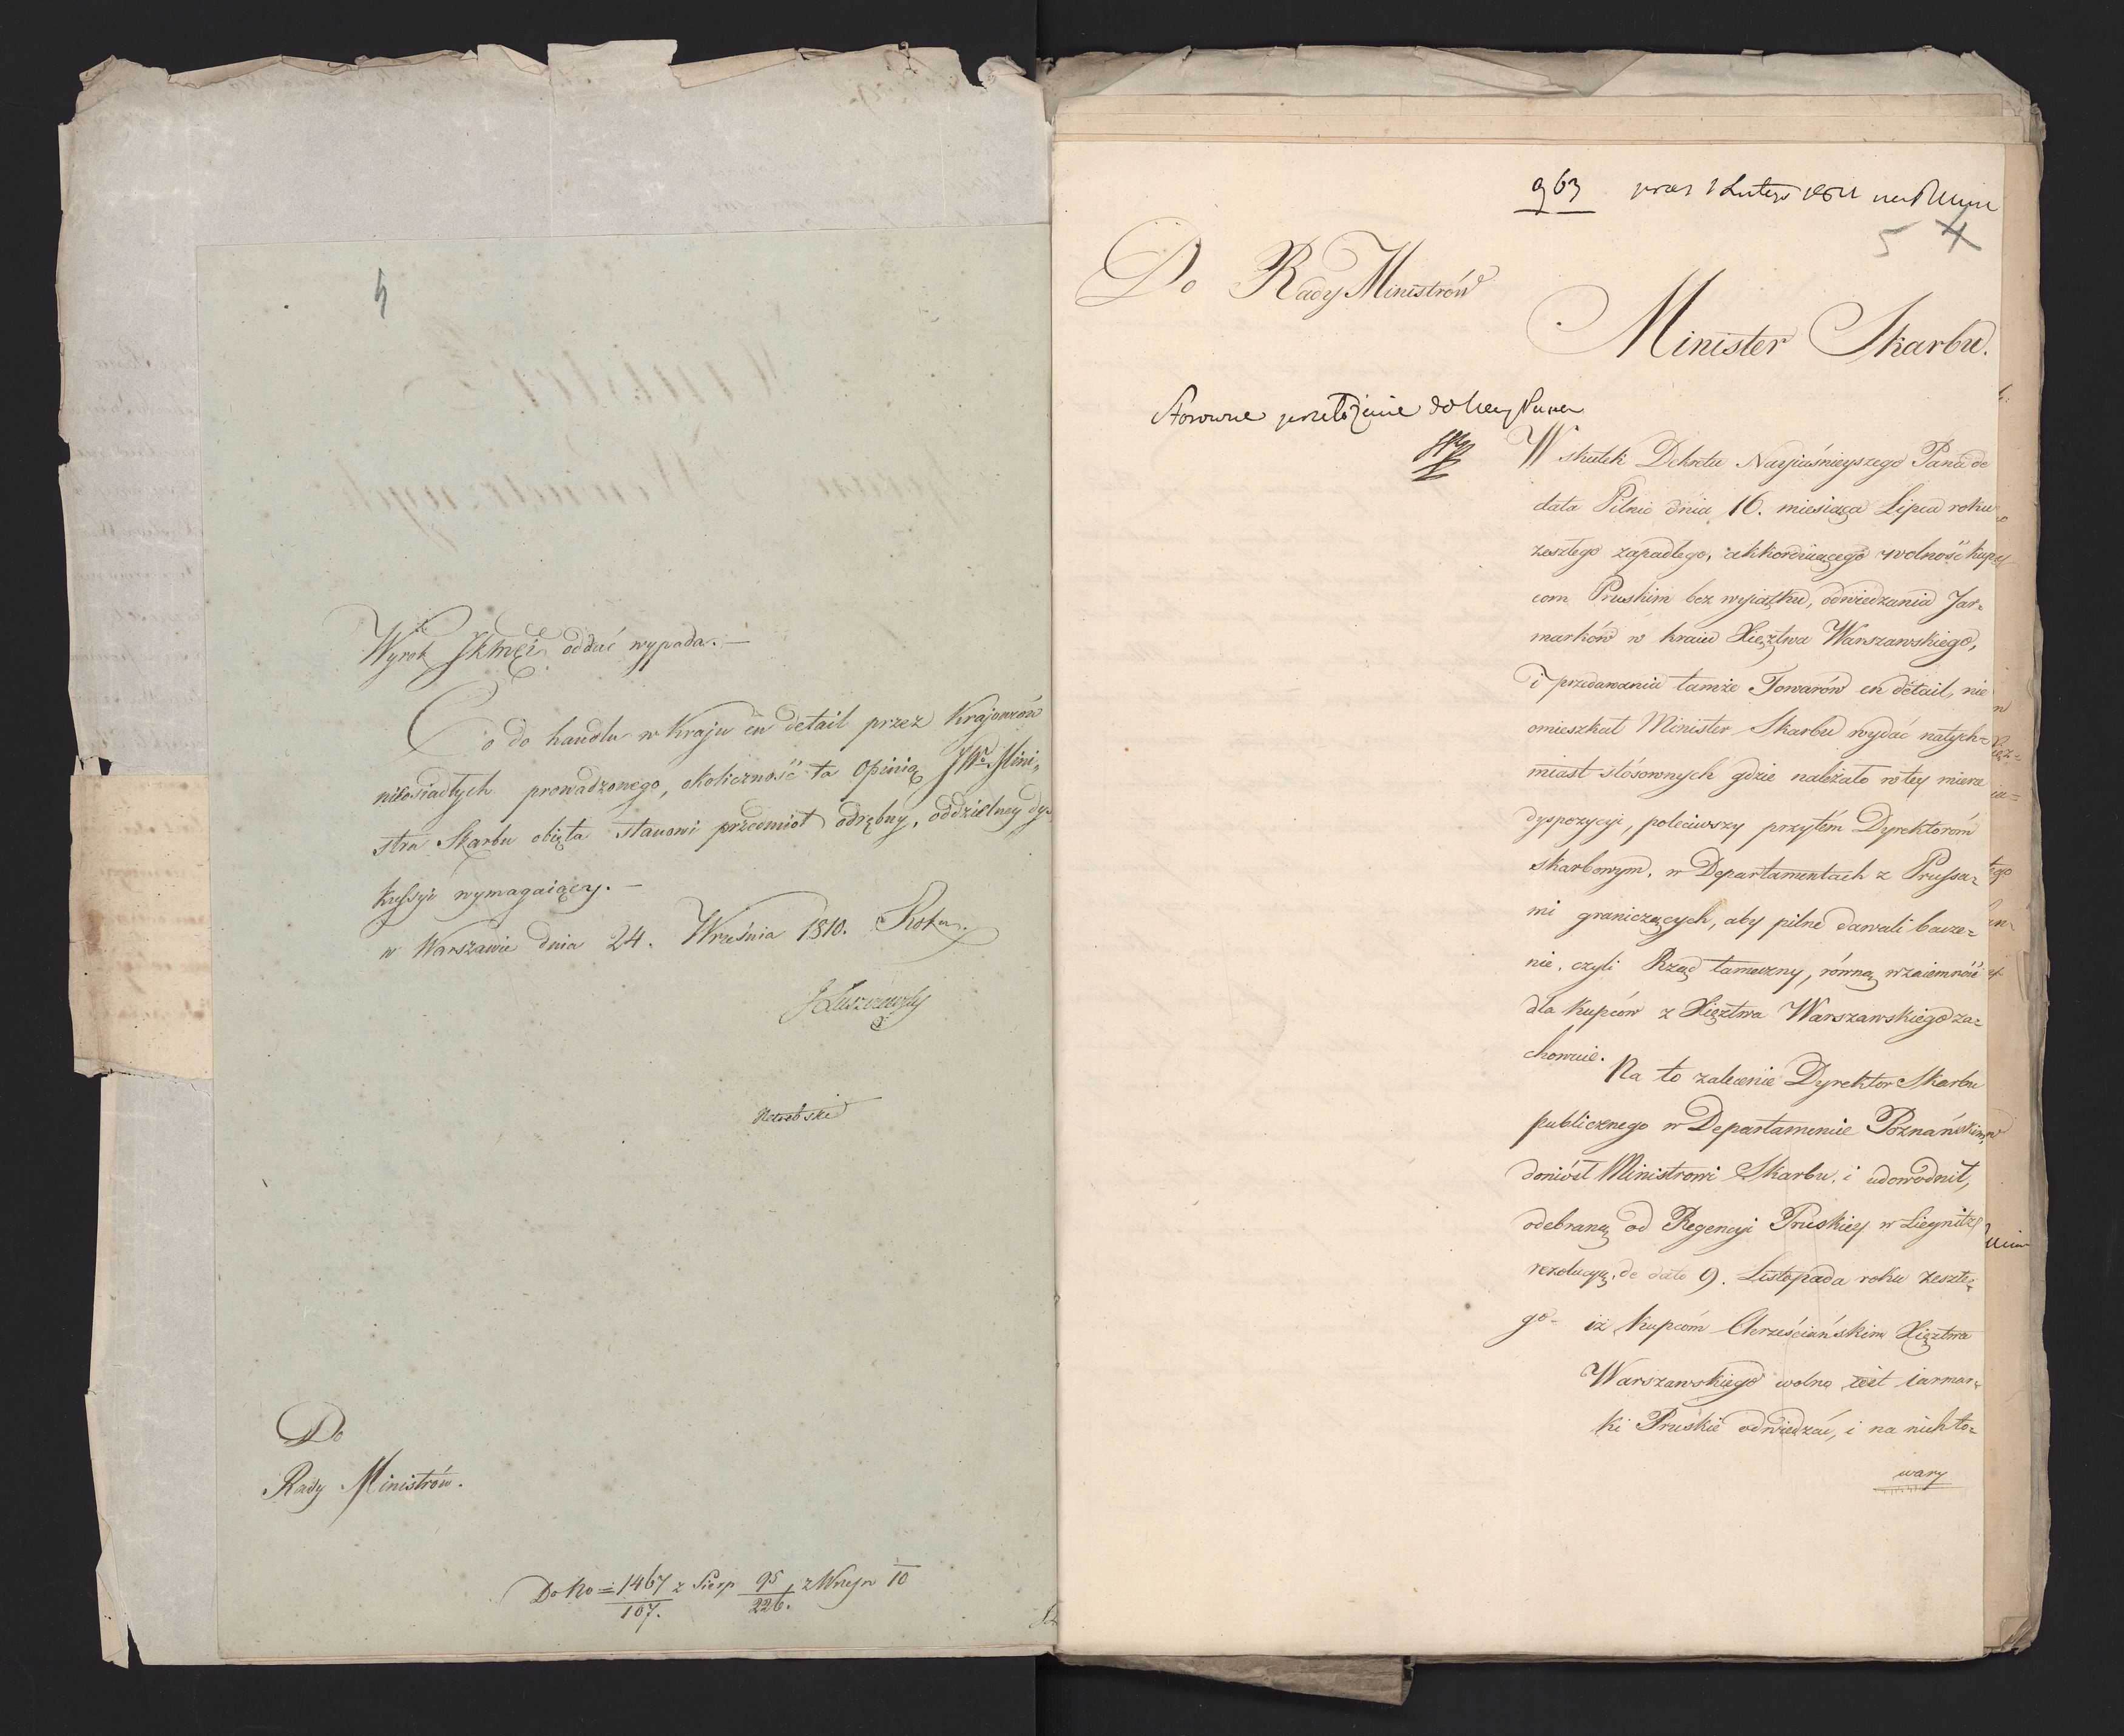 4
Wyrok JKMci oddać wypada. —
Co do handlu w Kraju en detail przez Krajowców
nieosiadłych prowadzonego, okoliczność ta Opinią JW. Mini-
stra Skarbu obięta stanowi przedmiot odrębny, oddzielney dy-
kussyi wymagaiący. —
w Warszawie dnia 24. Września 1810. Roku.
J Łuszczewski
Do
Rady Ministrów.
Do No 1467/107. z Sierp 95/226. z Wrześn 10
963 prez 1 Lutego 1811
5 4
Do Rady Ministrów
Minister Skarbu.
Stosowne przełożenie do
W skutek Dekretu Nayiaśnieyszego Pana de
data Pilnic dnia 16. miesiąca Lipca roku
zeszłego zapadłego, akkorduiącego wolność kup-
com Pruskim bez wyiątku, odwiedzania Jar-
marków w kraiu Xięztwa Warszawskiego,
i przedawania tamże Towarów en détail, nie
omieszkał Minister Skarbu wydać natych-
miast stósownych gdzie należało w tey mierze
dyspozycyi, poleciwszy przytém Dyrektorom
skarbowym, w Departamentach z Prussa-
mi graniczących, aby pilne dawali bacze-
nie, czyli Rząd tameczny, równą wzaiemność
dla kupców z Xięztwa Warszawskiego za-
chowuie.
Na to zalecenie Dyrektor Skarbu
publicznego w Departamencie Poznańskim,
doniósł Ministrowi Skarbu, i udowodnił,
odebraną od Regencyi Pruskiey w Liegnitz
rezolucyą, de dato 9. Listopada roku zeszłe-
go iż kupcom Chrześciańskim Xięztwa
Warszawskiego wolno iest iarmar-
ki Pruskie odwiedzać, i na nich to-
wary